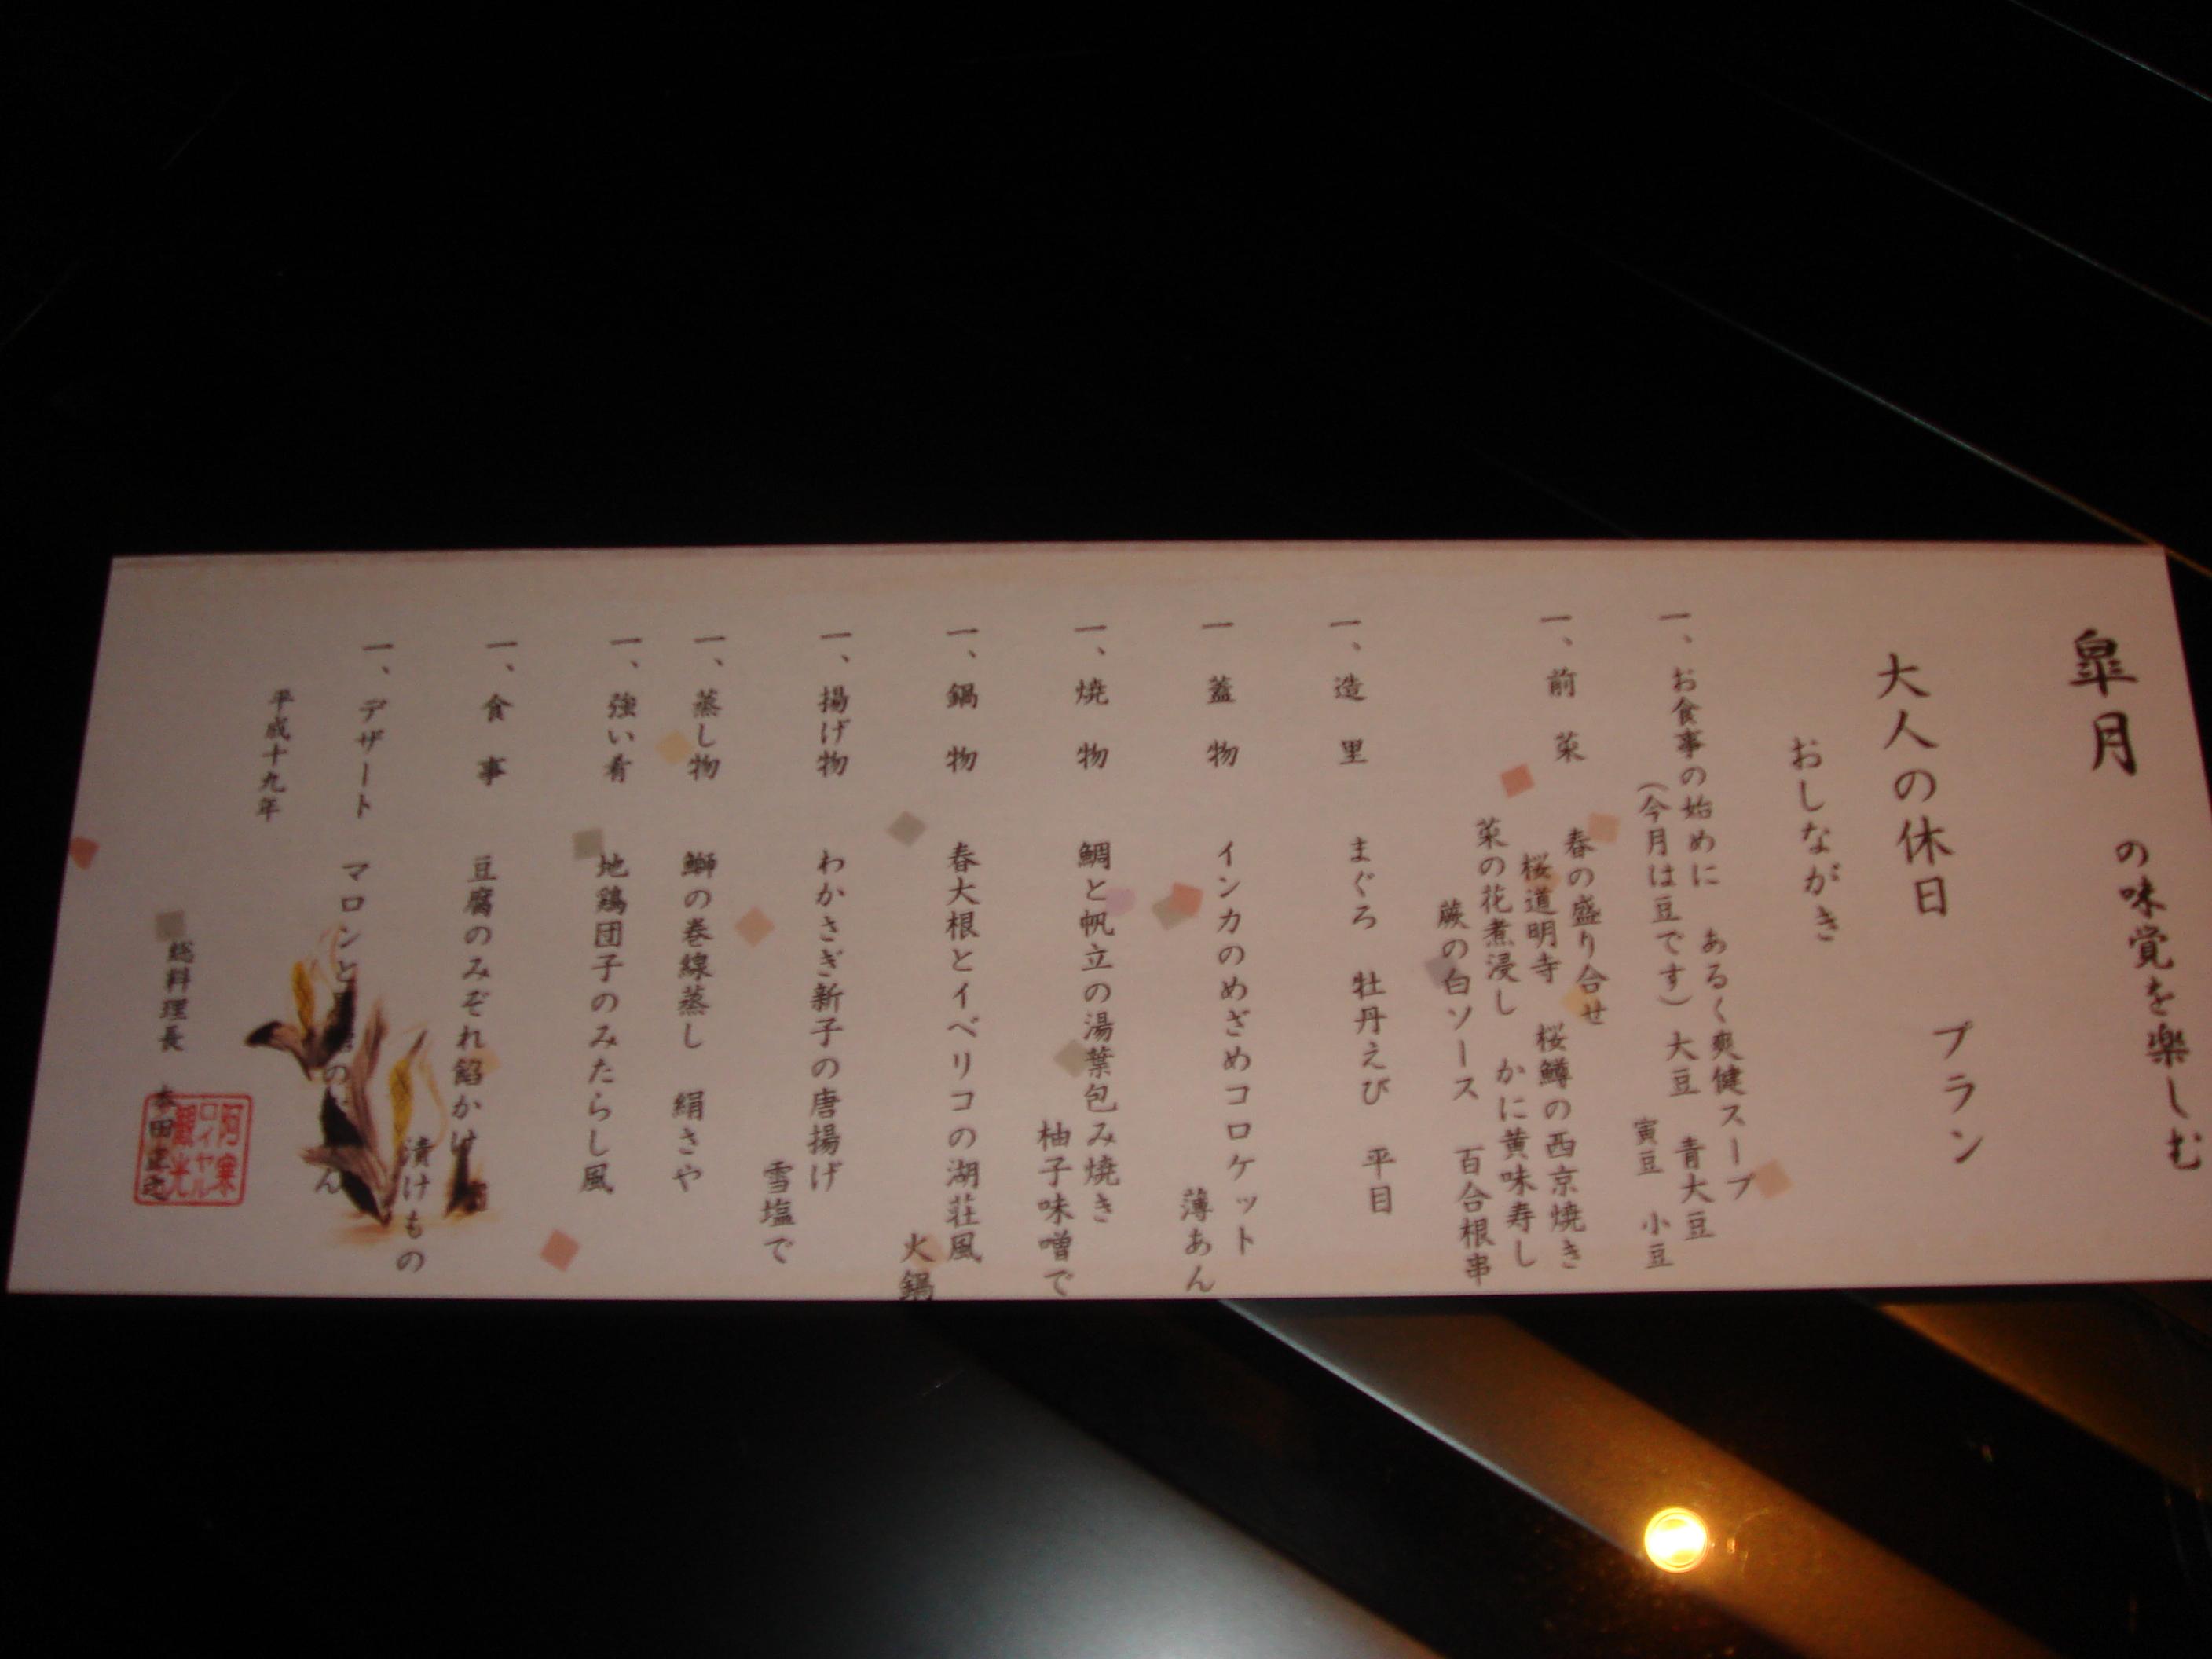 皐月 の味覚を楽しむ
大人の休日 プラン
おしながき
一、お食事の始めに あるく爽健スープ
(今月は豆です) 大豆 青大豆
寅豆 小豆
一、前菜 春の盛り合せ
桜道明寺 桜鱒の西京焼き
菜の花煮浸し かに黄味寿し
蕨の白ソース 百合根串
一、造里 まぐろ 牡丹えび 平目
一 蓋物 インカのめざめコロケット
薄あん
一、焼物 鯛と帆立の湯葉包み焼き
柚子味噌で
一、鍋物 春大根とイベリコの湖荘風
火鍋
一、揚げ物 わかさぎ新子の唐揚げ
雪塩で
一、蒸し物 鰤の巻線蒸し 絹さや
一、強い肴 地鶏団子のみたらし風
一、食事 豆腐のみぞれ餡かけ
漬けもの
一、デザート マロンと
平成十九年
総料理長 本田正之
阿寒
ロイヤル
観光